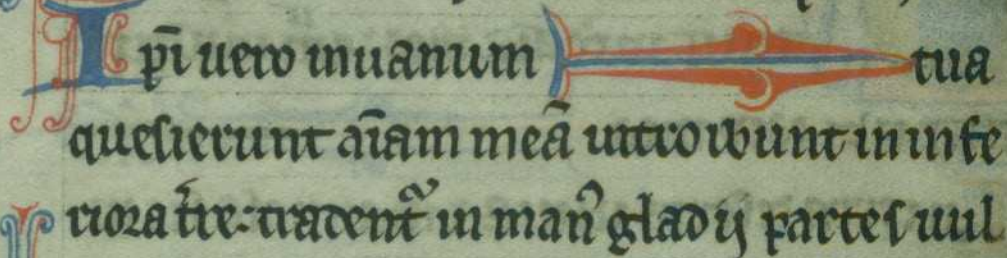 Ip̄i uero inuanum tua
quesierunt aīam meā introibunt in infe
riora t̄re: tradent᷑ in man᷒ gladij partes uul